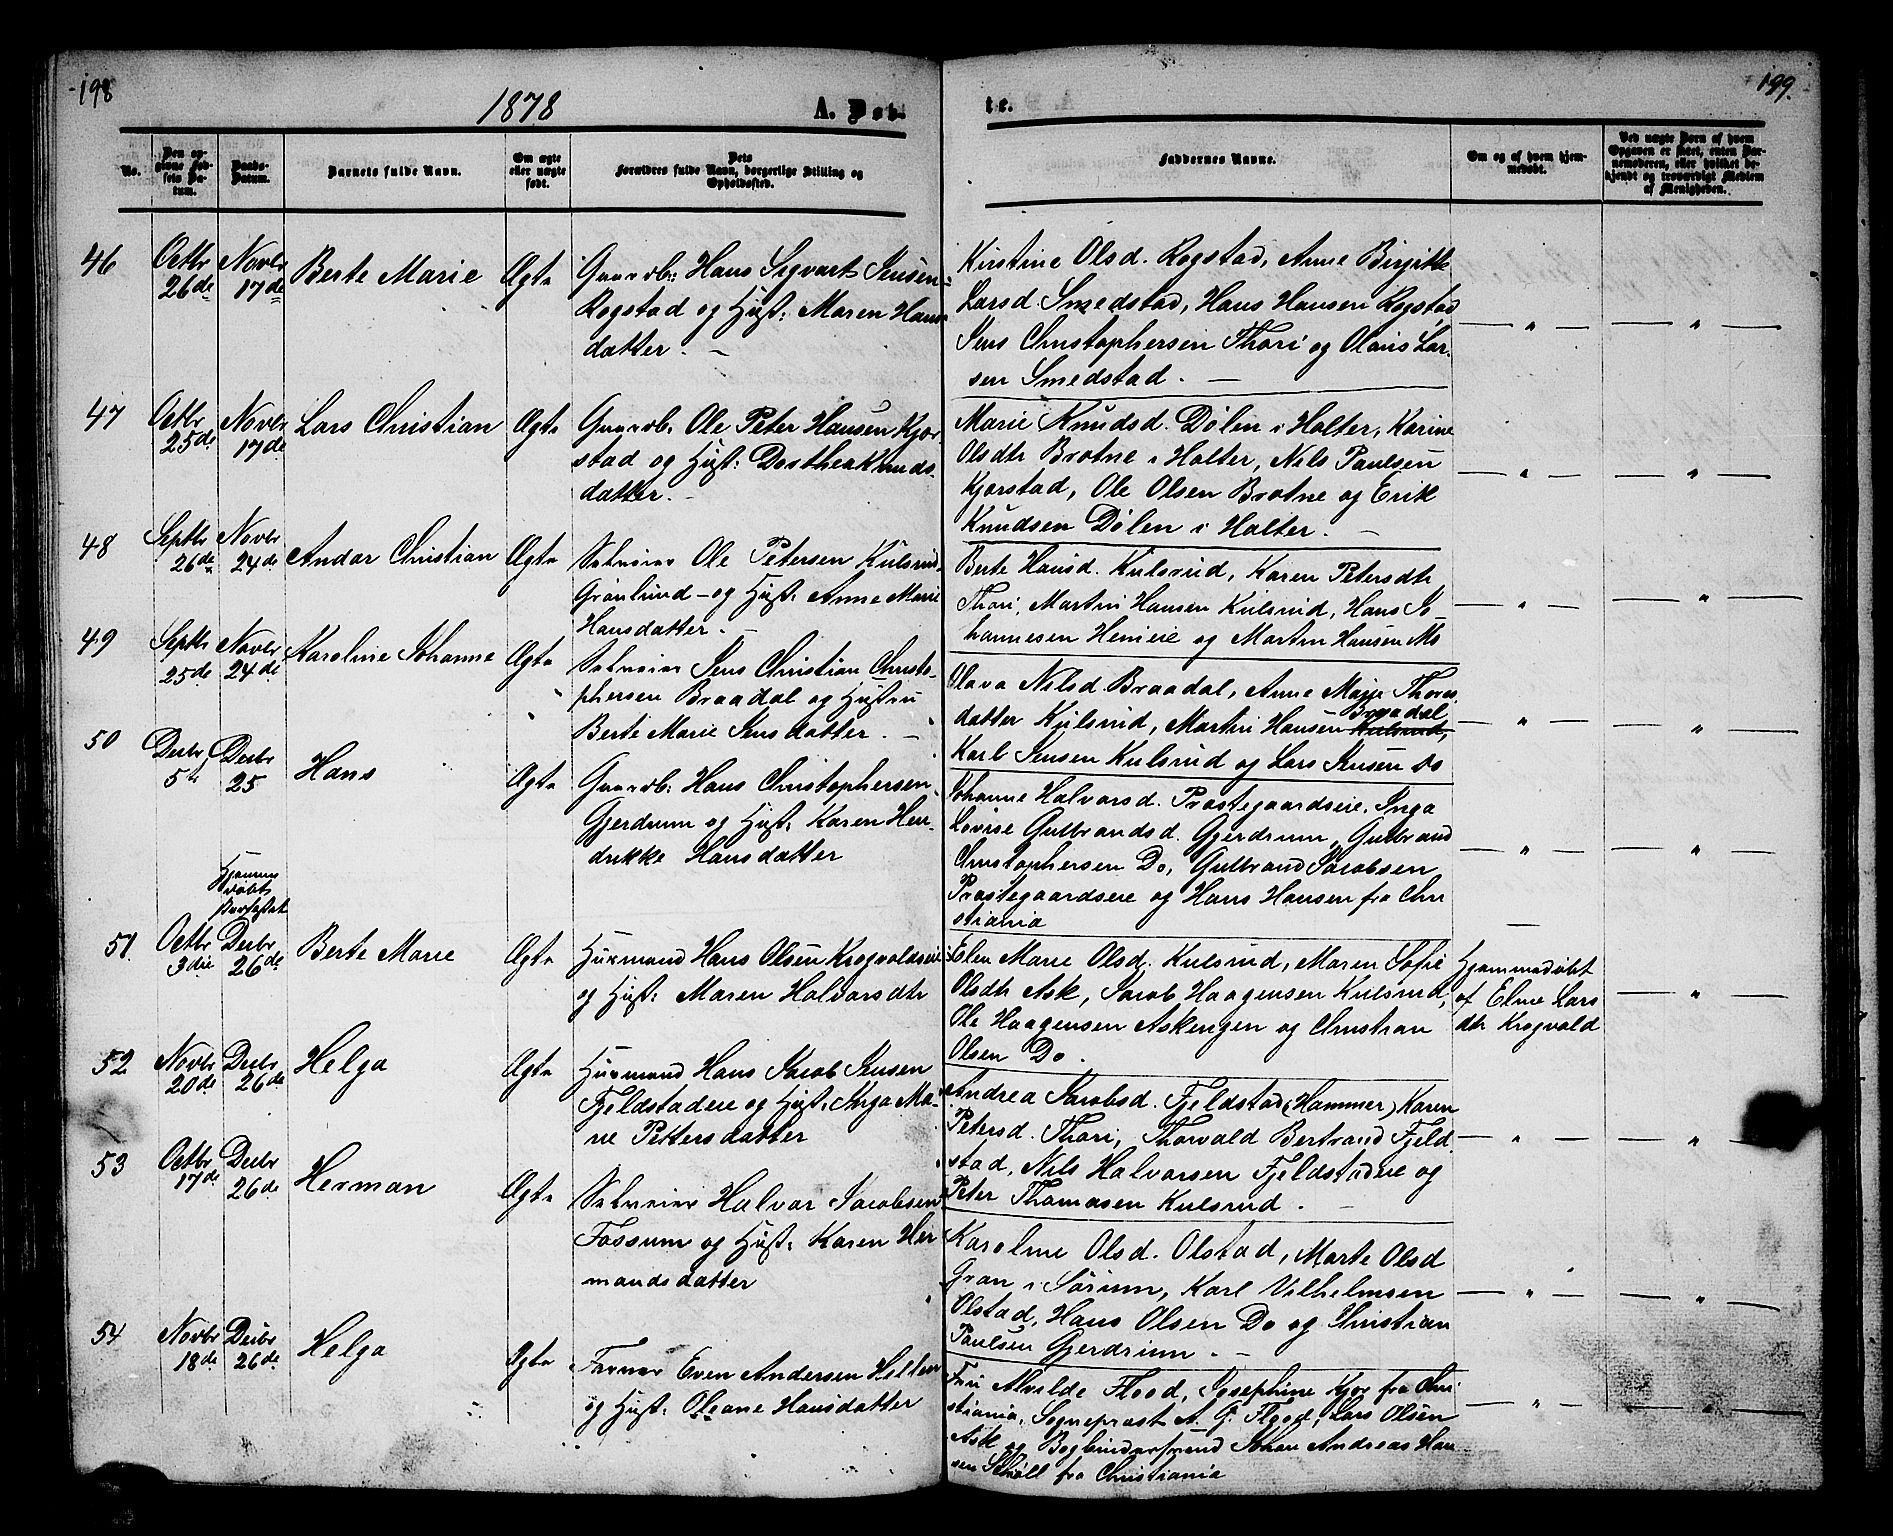 198
199.
1878
A. Døb-
te.
No.
Den opgivne Fødsels Datum.
Daabs-Datum.
Barnets fulde Navn.
Om ægte eller uægte født.
Dets Forældres fulde Navn, borgerlige Stilling og Opholdssted.
Faddernes Navne.
Om og af hvem hjemmedøbt.
Ved uægte Børn af hvem Opgaven er skeet, enten Barnemoderen, eller hvilket bekjendt og troværdigt Medlem af Menigheden.
46
Octbr 26de
Novbr 17de
Berte Marie
Ægte
Gaardb: Hans Segvart Jensen
Rogstad og Hust: Maren Hans
datter. —
Kirstine Olsd. Rogstad, Anne Birgitte
Larsd. Smedstad, Hans Hansen Rogstad
Jens Christophersen Thori og Olaus Lar-
sen Smedstad. —
— " —
— " —
47
Octbr 25de
Novbr 17de
Lars Christian
Ægte
Gaardb: Ole Peter Hansen Kjor-
stad og Hust: Dorthea Knuds
datter. —
Marie Knudsd. Dølen i Holter, Karine
Olsdtr Brotne i Holter, Nils Paulsen
Kjorstad, Ole Olsen Brotne og Erik
Knudsen Dølen i Holter. —
— " —
— " —
48
Septbr 26de
Novbr 24de
Andor Christian
Ægte
Selveier Ole Petersen Kulsrud-
Grønlund – og Hust: Anne Marie
Hansdatter. —
Berte Hansd. Kulsrud, Karen Petersdtr
Thori, Martin Hansen Kulsrud, Hans Jo
hannesen Henieie og Martin Hansen Mo
— " —
— " —
49
Septbr 25de
Novbr 24de
Karoline Johanne
Ægte
Selveier Jens Christian Christo-
phersen Braadal og Hustru
Berte Marie Jensdatter. —
Olava Nilsd. Braadal, Anne Marie Thores
datter Kulsrud, Martin Hansen Kulsrud, Braadal
Karl Jensen Kulsrud og Lars Jensen Do
— " —
— " —
50
Decbr 5te
Decbr 25
Hans
Ægte
Gaardb: Hans Christophersen
Gjerdrum og Hust: Karen Hen-
drikke Hansdatter
Johanne Halvorsd. Præstegaardseie, Inga
Lovise Gulbrandsd. Gjerdrum, Gulbrand
Christophersen Do, Gulbrand Jacobsen
Præstegaardseie og Hans Hansen fra Chri
stiania
— " —
— " —
51.
Octbr 3die
Hjemme
døbt
Decbr 26de
Berte Marie
Ægte
Husmand Hans Olsen Krogvoldseie
og Hust: Maren Halvorsdtr
Elen Marie Olsd. Kulsrud, Maren Sofie
Olsdtr Ask, Jacob Haagensen Kulsrud,
Ole Haagensen Askengen og Christian
Olsen Do.
Hjemmedøbt
af Eline Lars
dtr Krogvold
— " —
52
Novbr 20de
Decbr 26de
Helga
Ægte
Husmand Hans Jacob Jensen
Fjeldstadeie og Hust: Inga Ma-
rie Pettersdatter
Andrea Jacobsd. Fjeldstad (Hammer) Karen
Petersd. Thori, Thorvald Bertrand Fjeld-
stad, Nils Halvorsen Fjeldstadeie og
Peter Thomasen Kulsrud. —
— " —
— " —
53
Octbr 17de
Decbr 26de
Herman
Ægte
Selveier Halvor Jacobsen
Fossum og Hust: Karen Her
mandsdatter
Karoline Olsd. Olstad, Marte Olsd
Gran i Sørum, Karl Vilhelmsen
Olstad, Hans Olsen Do og Christian
Paulsen Gjerdrum. —
— " —
— " —
54
Novbr 18de
Decbr 26de
Helga
Ægte
Farver Even Andersen Hellen
og Hust: Oleane Hansdatter
Fru Alvilde Flood, Josephine Kjør fra Chri
stiania, Sogneprest A. G. Flood, Lars Olsen
Ask og Bogbindersvend Johan Andreas Han
sen Schøll fra Christiania
— " —
— " —